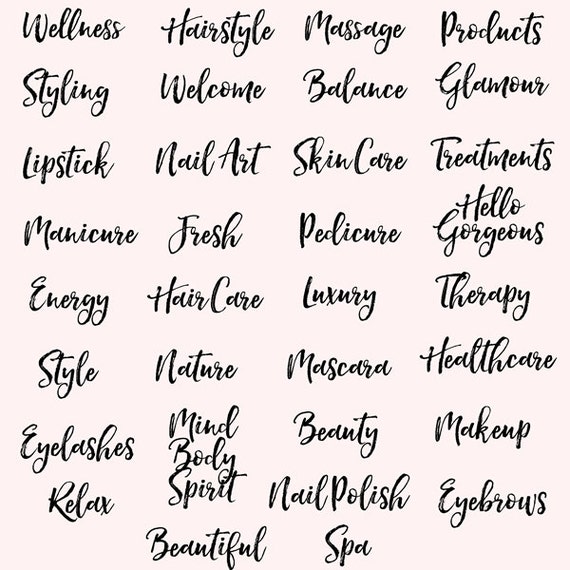 Wellness Hairstyle Massage Products
Styling Welcome Balance Glamour
Lipstick Nail Art Skin Care Treatments
Manicure Fresh Pedicure Hello Gorgeous
Energy Hair Care Luxury Therapy
Style Nature Mascara Healthcare
Eyelashes Mind Body Spirit Beauty Makeup
Relax Nail Polish Eyebrows
Beautiful Spa